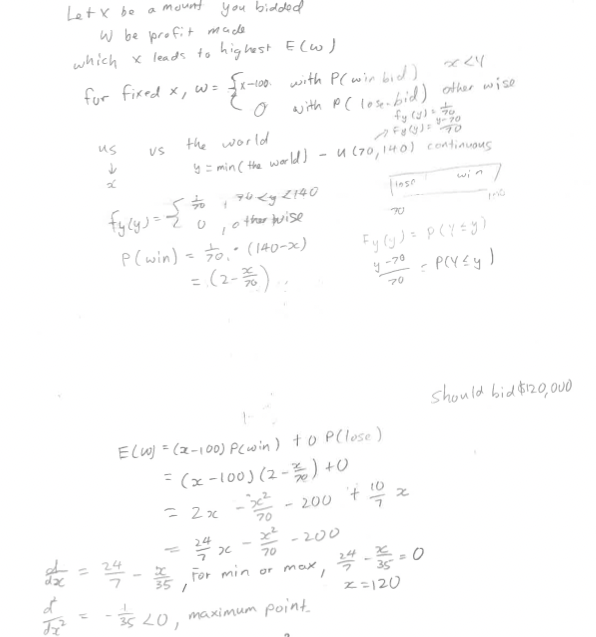 Let x be amount you bidded
W be profit made
which x leads to highest E(W)
for fixed x, W = { x-100 with P(win bid) x<Y
0 with P(lose bid) otherwise
f_Y(y) = 1/70
→ F_Y(y) = y-70/70
us vs the world
↓
x
y = min(the world) ~ U(70,140) continuous
lose win
70 140
f_Y(y) = { 1/70 , 70<y<140
0 , otherwise
F_Y(y) = P(Y≤y)
P(win) = 1/70 · (140-x)
= (2-x/70)
y-70/70 = P(Y≤y)
Should bid $120,000
E(W) = (x-100) P(win) + 0 P(lose)
= (x-100)(2-x/70) +0
= 2x - x²/70 - 200 + 10/7 x
= 24/7 x - x²/70 - 200
d/dx = 24/7 - x/35 , For min or max, 24/7 - x/35 = 0
x=120
d²/dx² = -1/35 <0, maximum point.